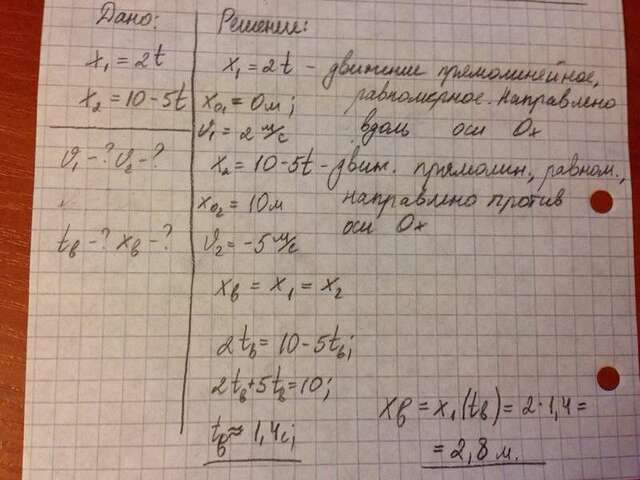 Дано:
x₁ = 2t
x₂ = 10 - 5t
v₁ - ? v₂ - ?
t_в - ? x_в - ?
Решение:
x₁ = 2t - движение прямолинейное,
x₀₁ = 0м; равномерное. Направлено
v₁ = 2 м/с вдоль оси Ox
x₂ = 10 - 5t - движ. прямолин., равном.,
x₀₂ = 10м направлено против
оси Ox
v₂ = -5 м/с
x_в = x₁ = x₂
2t_в = 10 - 5t_в;
2t_в + 5t_в = 10;
t_в ≈ 1,4с;
x_в = x₁(t_в) = 2·1,4 =
= 2,8 м.